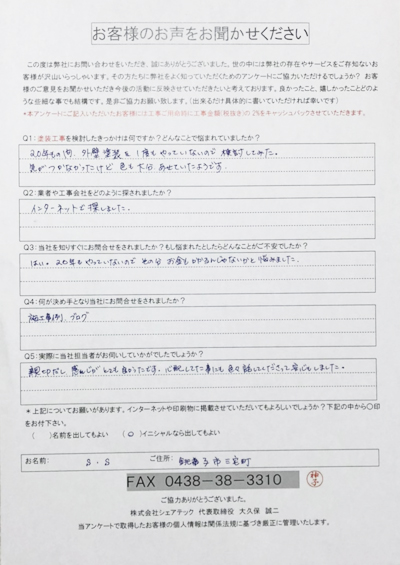 お客様のお声をお聞かせください
この度は弊社にお問い合わせをいただき、誠にありがとうございました。世の中には弊社の存在やサービスをご存知ないお客様が沢山いらっしゃいます。その方たちに弊社をよく知っていただくためのアンケートにご協力いただけるでしょうか? お客様のご意見をお聞かせいただき今後の活動に反映させていただきたいと考えております。良かったこと、嬉しかったことどのような些細な事でも結構です。是非ご協力お願い致します。(出来るだけ具体的に書いていただければ幸いです)
*本アンケートにご記入いただいたお客様には工事ご用命時に工事金額(税抜き)の2%をキャッシュバックさせていただきます。
Q1:塗装工事を検討したきっかけは何ですか?どんなことで悩まれていましたか?
20年もの間、外壁塗装を1度もやっていないので検討してみた。
気がつかなかったけど色も大分あせていたようです。
Q2:業者や工事会社をどのように探されましたか?
インターネットで探しました。
Q3:当社を知りすぐにお問合せをされましたか?もし悩まれたとしたらどんなことがご不安でしたか?
はい。20年もやっていないのでその分お金もかかるんじゃないかと悩みました。
Q4:何が決め手となり当社にお問合せをされましたか?
施工事例、ブログ
Q5:実際に当社担当者がお伺いしていかがでしたでしょうか?
親切だし、感じがとても良かったです。心配してた事にも色々話してくださって安心もしました。
*上記についてお願いがあります。インターネットや印刷物に掲載させていただいてもよろしいでしょうか?下記の中から〇印をお付下さい。
( )名前を出してもよい (○)イニシャルなら出してもよい
お名前: S.S ご住所: 市三宅町
FAX 0438-38-3310
ご協力ありがとうございました。
株式会社シェアテック 代表取締役 大久保 誠二
当アンケートで取得したお客様の個人情報は関係法規に基づき厳正に管理いたします。